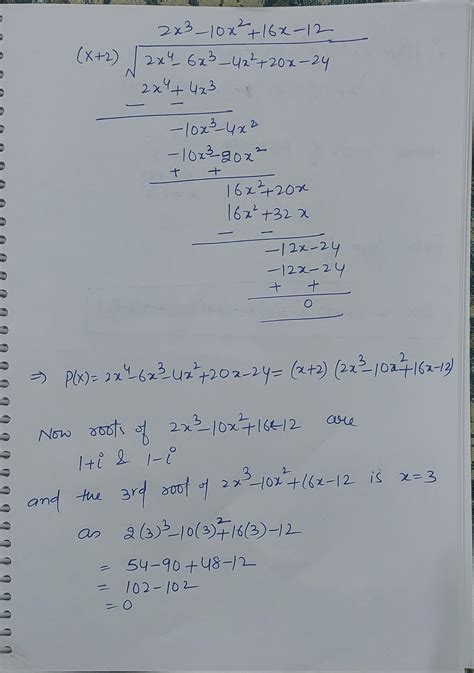 2x³-10x²+16x-12
(x+2) √2x⁴-6x³-4x²+20x-24
2x⁴+4x³
- -
-10x³-4x²
-10x³-20x²
+ +
16x²+20x
16x²+32x
- -
-12x-24
-12x-24
+ +
0
⇒ P(x)= 2x⁴-6x³-4x²+20x-24= (x+2) (2x³-10x²+16x-12)
Now roots of 2x³-10x²+16x-12 are
1+i & 1-i
and the 3rd root of 2x³-10x²+16x-12 is x=3
as 2(3)³-10(3)²+16(3)-12
= 54-90+48-12
= 102-102
= 0